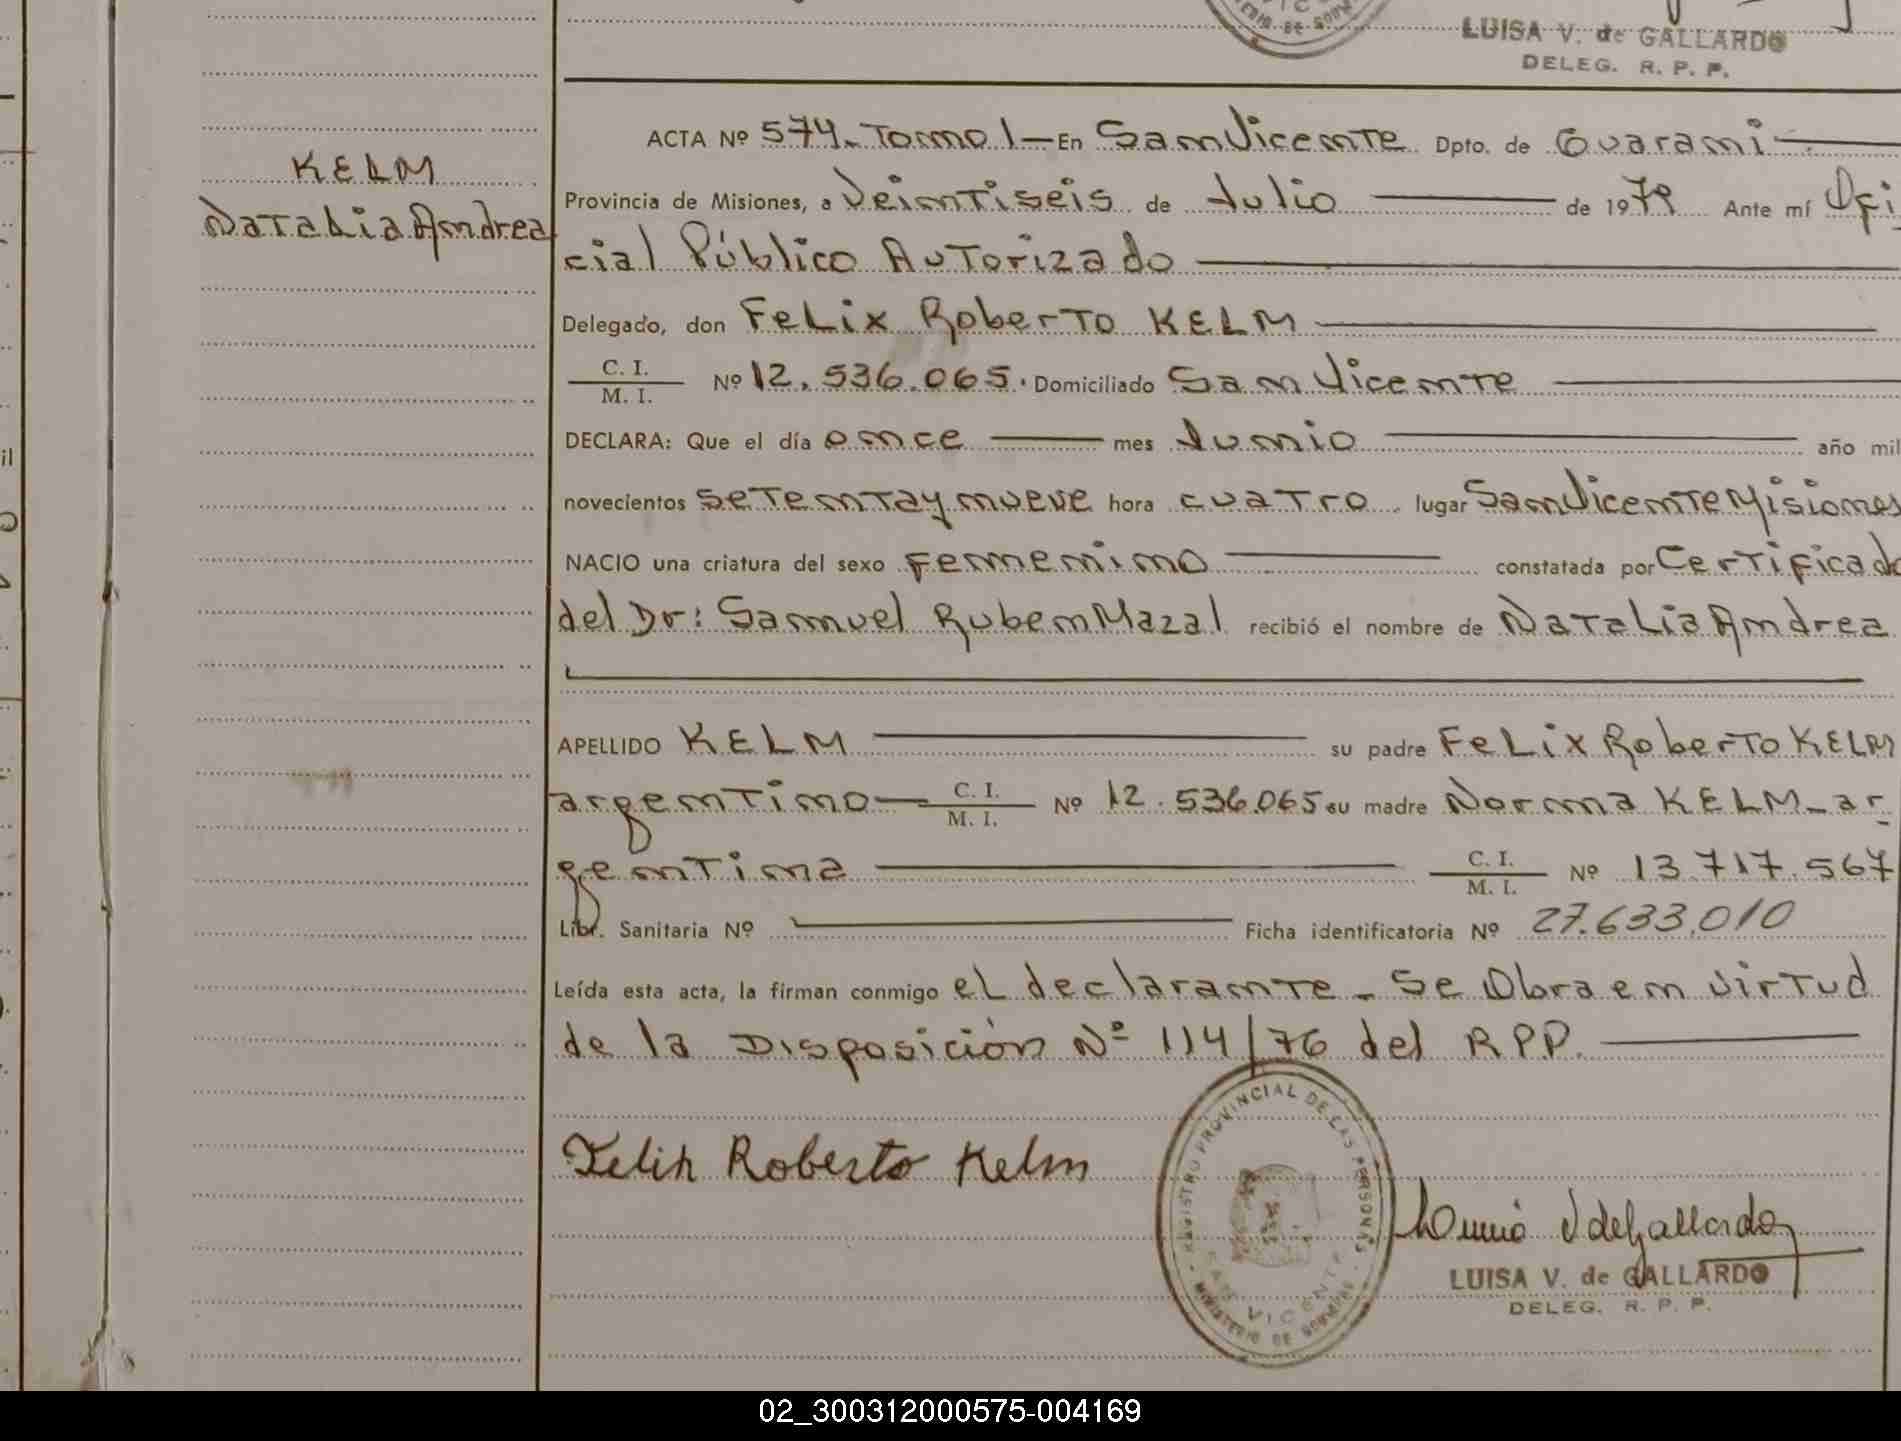 LUISA V. de GALLARDO
DELEG. R. P. P.
KELM
Natalia Andrea
ACTA Nº 574. Tomo I — En San Vicente Dpto. de Guaraní
Provincia de Misiones, a Veintiseis de Julio de 1979 Ante mí Ofi
cial Público Autorizado
Delegado, don Felix Roberto KELM
C. I.
M. I. Nº 12.536.065. Domiciliado San Vicente
DECLARA: Que el día once mes Junio año mil
novecientos setenta y nueve hora cuatro lugar San Vicente Misiones
NACIO una criatura del sexo femenino constatada por Certificado
del Dr: Samuel Ruben Mazal recibió el nombre de Natalia Andrea
APELLIDO KELM su padre Felix Roberto KELM
argentino C. I. M. I. Nº 12.536.065 su madre Norma KELM - ar
gentina C. I. M. I. Nº 13.717.567
Libr. Sanitaria Nº Ficha identificatoria Nº 27.633.010
Leída esta acta, la firman conmigo el declarante - Se Obra en virtud
de la Disposición Nº 114/76 del RPP.
Felix Roberto Kelm
REGISTRO PROVINCIAL DE LAS PERSONAS
SAN VICENTE
MINISTERIO DE GOBIERNO
V de Gallardo
LUISA V. de GALLARDO
DELEG. R. P. P.
02_300312000575-004169